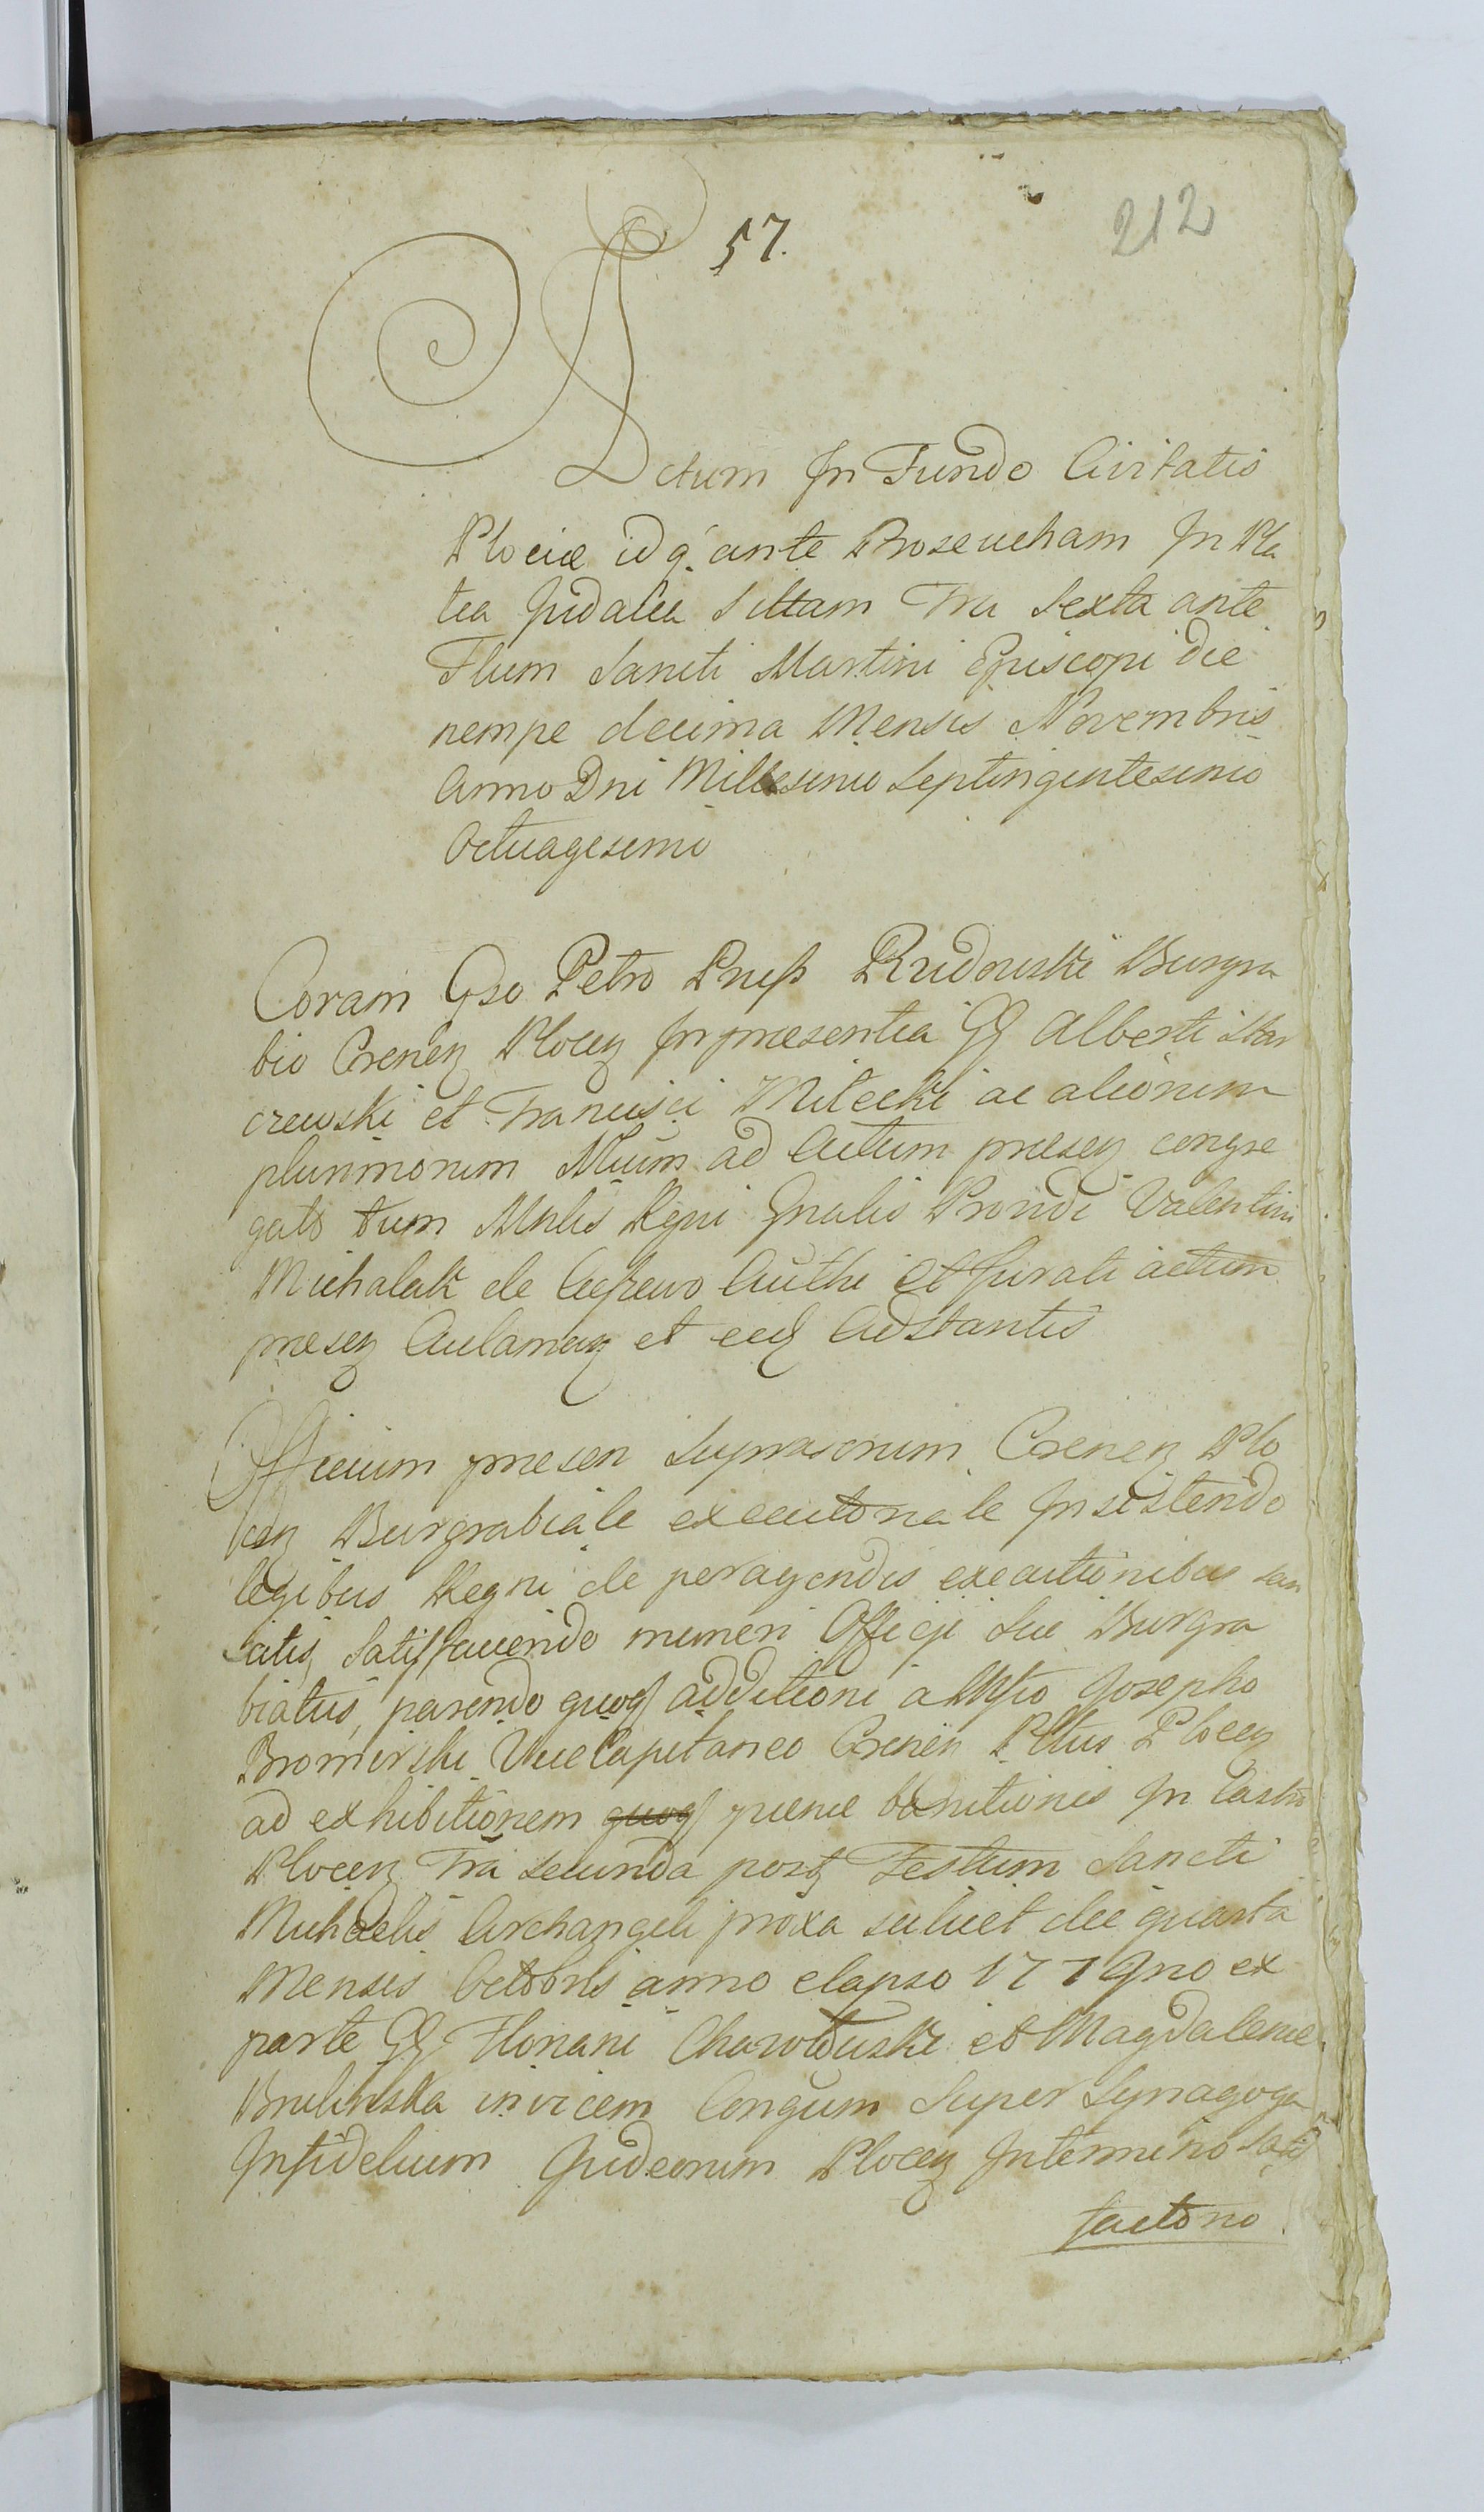 57.
212
Actum In Fundo Civitatis
Plociæ idq. ante Boseucham In Pla
tea Judaica Sittam Fra Sexta ante
Fstum Sancti Martini Episcopi die
nempe decima Mensis Novembris
Anno Dni Millesimo Septingentesimo
Octuagesimo
Coram Gso Petro Rudowski Burgra
bio Crenen Plocen In præsentia GG Alberti
et Francisci Mitecki ac aliorum
plurimorum ad Actum præsen congre
gato tum Mnlis Regni Gnalis Providi Valentini
Michalak de Authi et Jurati actum
præsen Aclaman et eid Adstantis
Officium præsen Suprascrium Crenen Plo
cen Burgrabiale executoriale Insistendo
legibus Regni de peragendis executionibus san
citis, Satisfaciendo muneri Officji Sui Burgra
biatus, parendo quoq additioni a Mgfco Josepho
Bromirski ViceCapitaneo Crenen Pltus Plocen
ad exhibitionem quoq pœnæ banitionis In Castro
Plocen Fra Secunda post Festum Sancti
Michaelis Archangeli proxa scilicet die quarta
Mensis Octobris anno elapso 1779no ex
parte GG Floriani et Magdalenæ
invicem Congum Super Synagoga
Infidelium Judeorum Plocen In termino Satis
factorio.